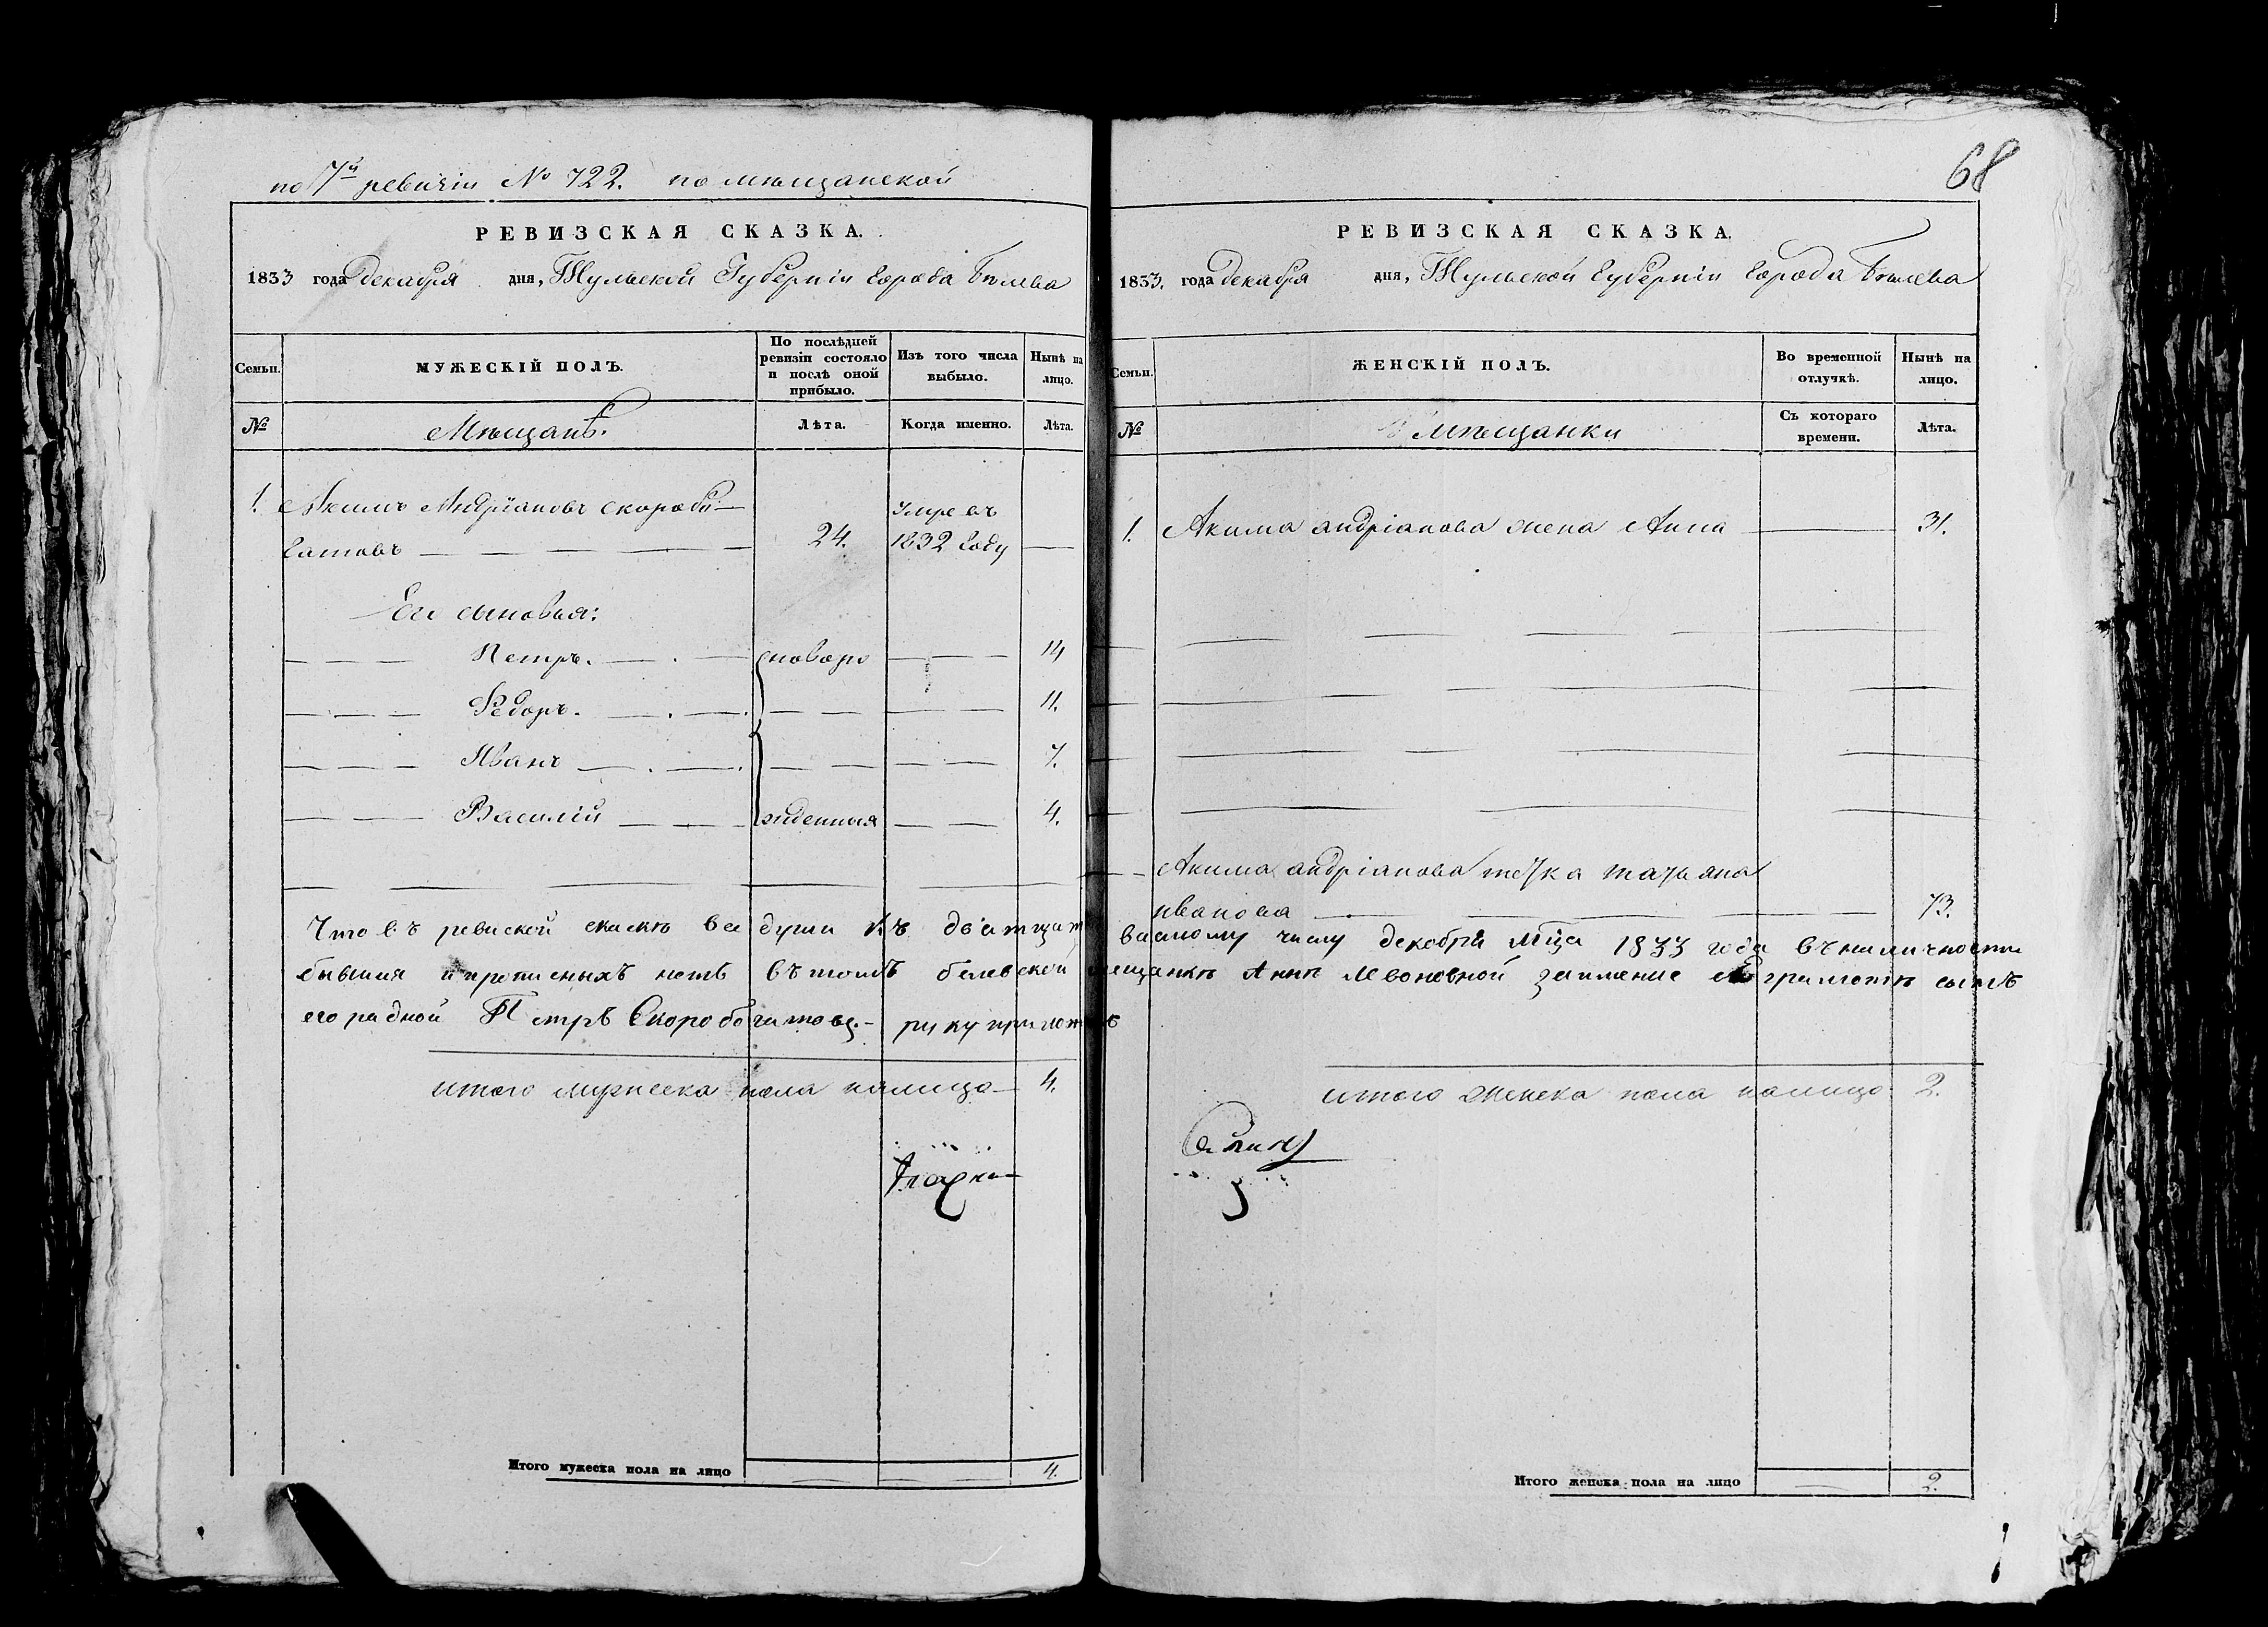 по 7й ревизіи № 722. по мѣщанской
РЕВИЗСКАЯ СКАЗКА.
1833 года декабря дня, Тульской Губерніи города Бѣлева
Семьи.
МУЖЕСКІЙ ПОЛЪ.
По послѣдней ревизіи состояло и послѣ оной прибыло.
Изъ того числа выбыло.
Нынѣ на лицо.
№
Мѣщанѣ.
Лѣта.
Когда именно.
Лѣта.
1. Акимъ Андріановъ скоробо-
гатовъ 24. Умре въ 1832 году
Его сыновья:
Петръ. новоро 14
Федоръ. 11.
Иванъ 7.
Василій жденныя 4.
68
РЕВИЗСКАЯ СКАЗКА.
1833. года декабря дня, Тульской Губерніи города Бѣлева
Семьи.
ЖЕНСКІЙ ПОЛЪ.
Во временной отлучкѣ.
Нынѣ на лицо.
№
мѣщанки
Съ котораго времени.
Лѣта.
1. Акима андріанова жена Анна 31.
Акима андріанова тетка татьяна
иванова 73.
Что въ ревиской скаскѣ все души къ дватцат васмому числу декобря мца 1833 года въ наличности
бывшия и прописныхъ нетъ въ томъ белевской мещанкѣ Аннѣ Левоновной заимение грамотѣ сынъ
его радной Петръ Скоробогатовъ руку приложъ
итого мужеска пола налицо 4.
итого женска пола налицо 2.
Итого мужеска пола на лицо 4.
Итого женска пола на лицо 2.